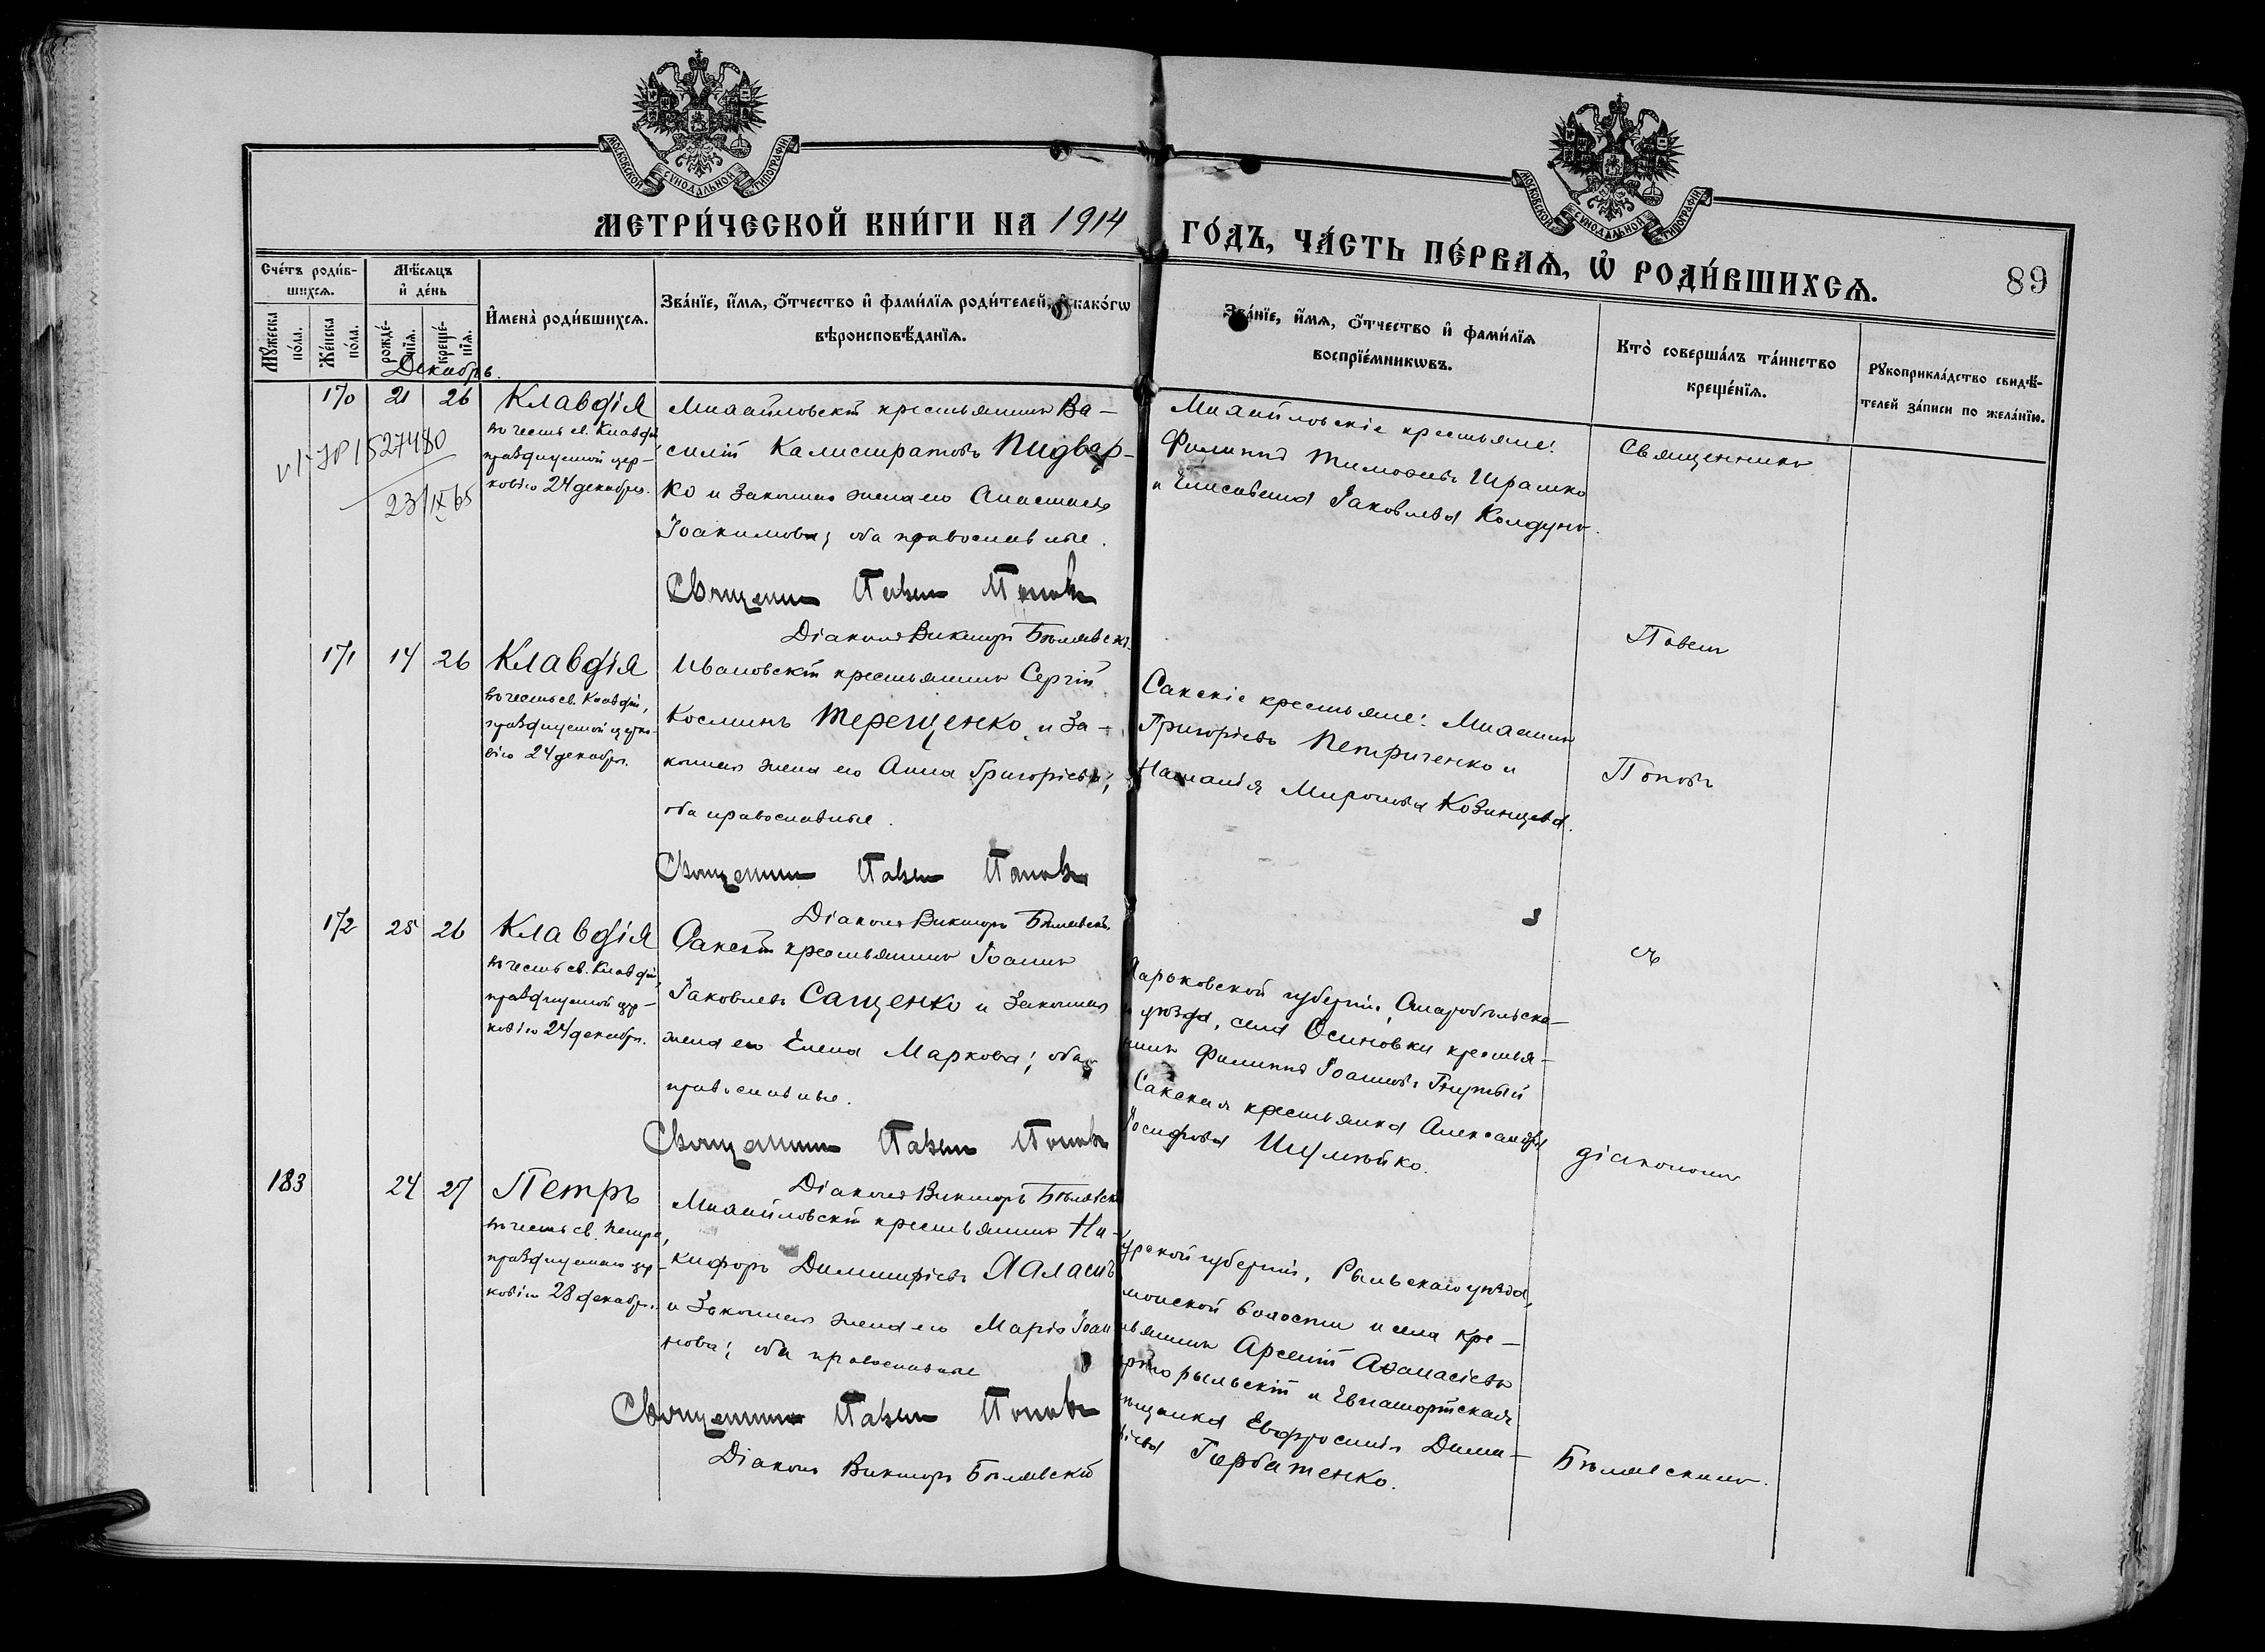 МОСКОВСКОЙ СУНОДАЛЬНОЙ ТИПОГРАФІИ
МОСКОВСКОЙ СУНОДАЛЬНОЙ ТИПОГРАФІИ
МЕТРИ́ЧЕСКОЙ КНИ́ГИ НА 1914
ГО́ДЪ, ЧА́СТЬ ПЕ́РВАѦ, Ѡ҆ РОДИ́ВШИХСѦ.
89
Сче́тъ роди́в-
шихсѧ.
Мꙋ́жеска по́ла.
Же́нска по́ла.
Мѣ́сѧцъ
и҆ де́нь
рожде́-
нїѧ.
креще́-
нїѧ.
И҆мена̀ роди́вшихсѧ.
Зва́нїе, и҆́мѧ, ѻ҆́тчество и҆ фами́лїѧ роди́телей, и҆ како́гѡ
вѣроисповѣ́данїѧ.
Зва́нїе, и҆́мѧ, ѻ҆́тчество и҆ фами́лїѧ
воспрїе́мникѡвъ.
Кто̀ соверша́лъ та́инство
креще́нїѧ.
Рꙋкоприкла́дство свидѣ́-
телей за́писи по жела́нїю.
Декабрь.
170 21 26
Клавдія
въ честь св. Клавдіи,
празднуемой цер-
ковію 24 декабря.
527480
23/IX 65
Михайловскій крестьянинъ Ва-
силій Калистратовъ Пидвар-
ко и законная жена его Анастасія
Іоакимова; оба православные.
Священникъ Павелъ Поповъ
Діаконъ Викторъ Бѣлявскій
Михайловскіе крестьяне:
Филиппъ Тимоѳеевъ Ирашко
и Елисавета Іаковлева Колдунъ.
Священникъ
Павелъ
Поповъ
съ
діакономъ
Бѣлявскимъ.
171 14 26
Клавдія
въ честь св. Клавдіи,
празднуемой церко-
вію 24 декабря.
Ивановскій крестьянинъ Сергій
Косминъ Терещенко и за-
конная жена его Анна Григорьева;
оба православные.
Священникъ Павелъ Поповъ
Діаконъ Викторъ Бѣлявскій
Сакскіе крестьяне: Михаилъ
Григорьевъ Петриченко и
Наталія Миронова Козинцева.
172 25 26
Клавдія
въ честь св. Клавдіи,
празднуемой цер-
ковію 24 декабря.
Сакскій крестьянинъ Іоаннъ
Іаковлевъ Сащенко и законная
жена его Елена Маркова; оба
православные.
Священникъ Павелъ Поповъ
Діаконъ Викторъ Бѣлявскій
Харьковской губерніи, Старобѣльска-
го уѣзда, села Осиновки крестья-
нинъ Филиппъ Іоанновъ
Сакская крестьянка Александра
Іосифова Шулейко.
183 24 27
Петръ
въ честь св. Петра,
празднуемаго цер-
ковію 28 декабря.
Михайловскій крестьянинъ Ни-
кифоръ Димитріевъ Халасъ
и законная жена его Марія Іоан
нова; оба православные
Священникъ Павелъ Поповъ
Діаконъ Викторъ Бѣлявскій
урской губерніи, Рыльскаго уѣзда,
волости и села кре-
стьянинъ Арсеній Аѳанасіевъ
рыльскій и Евпаторійская
мѣщанка Евфросинія Дими-
ріева Горбатенко.